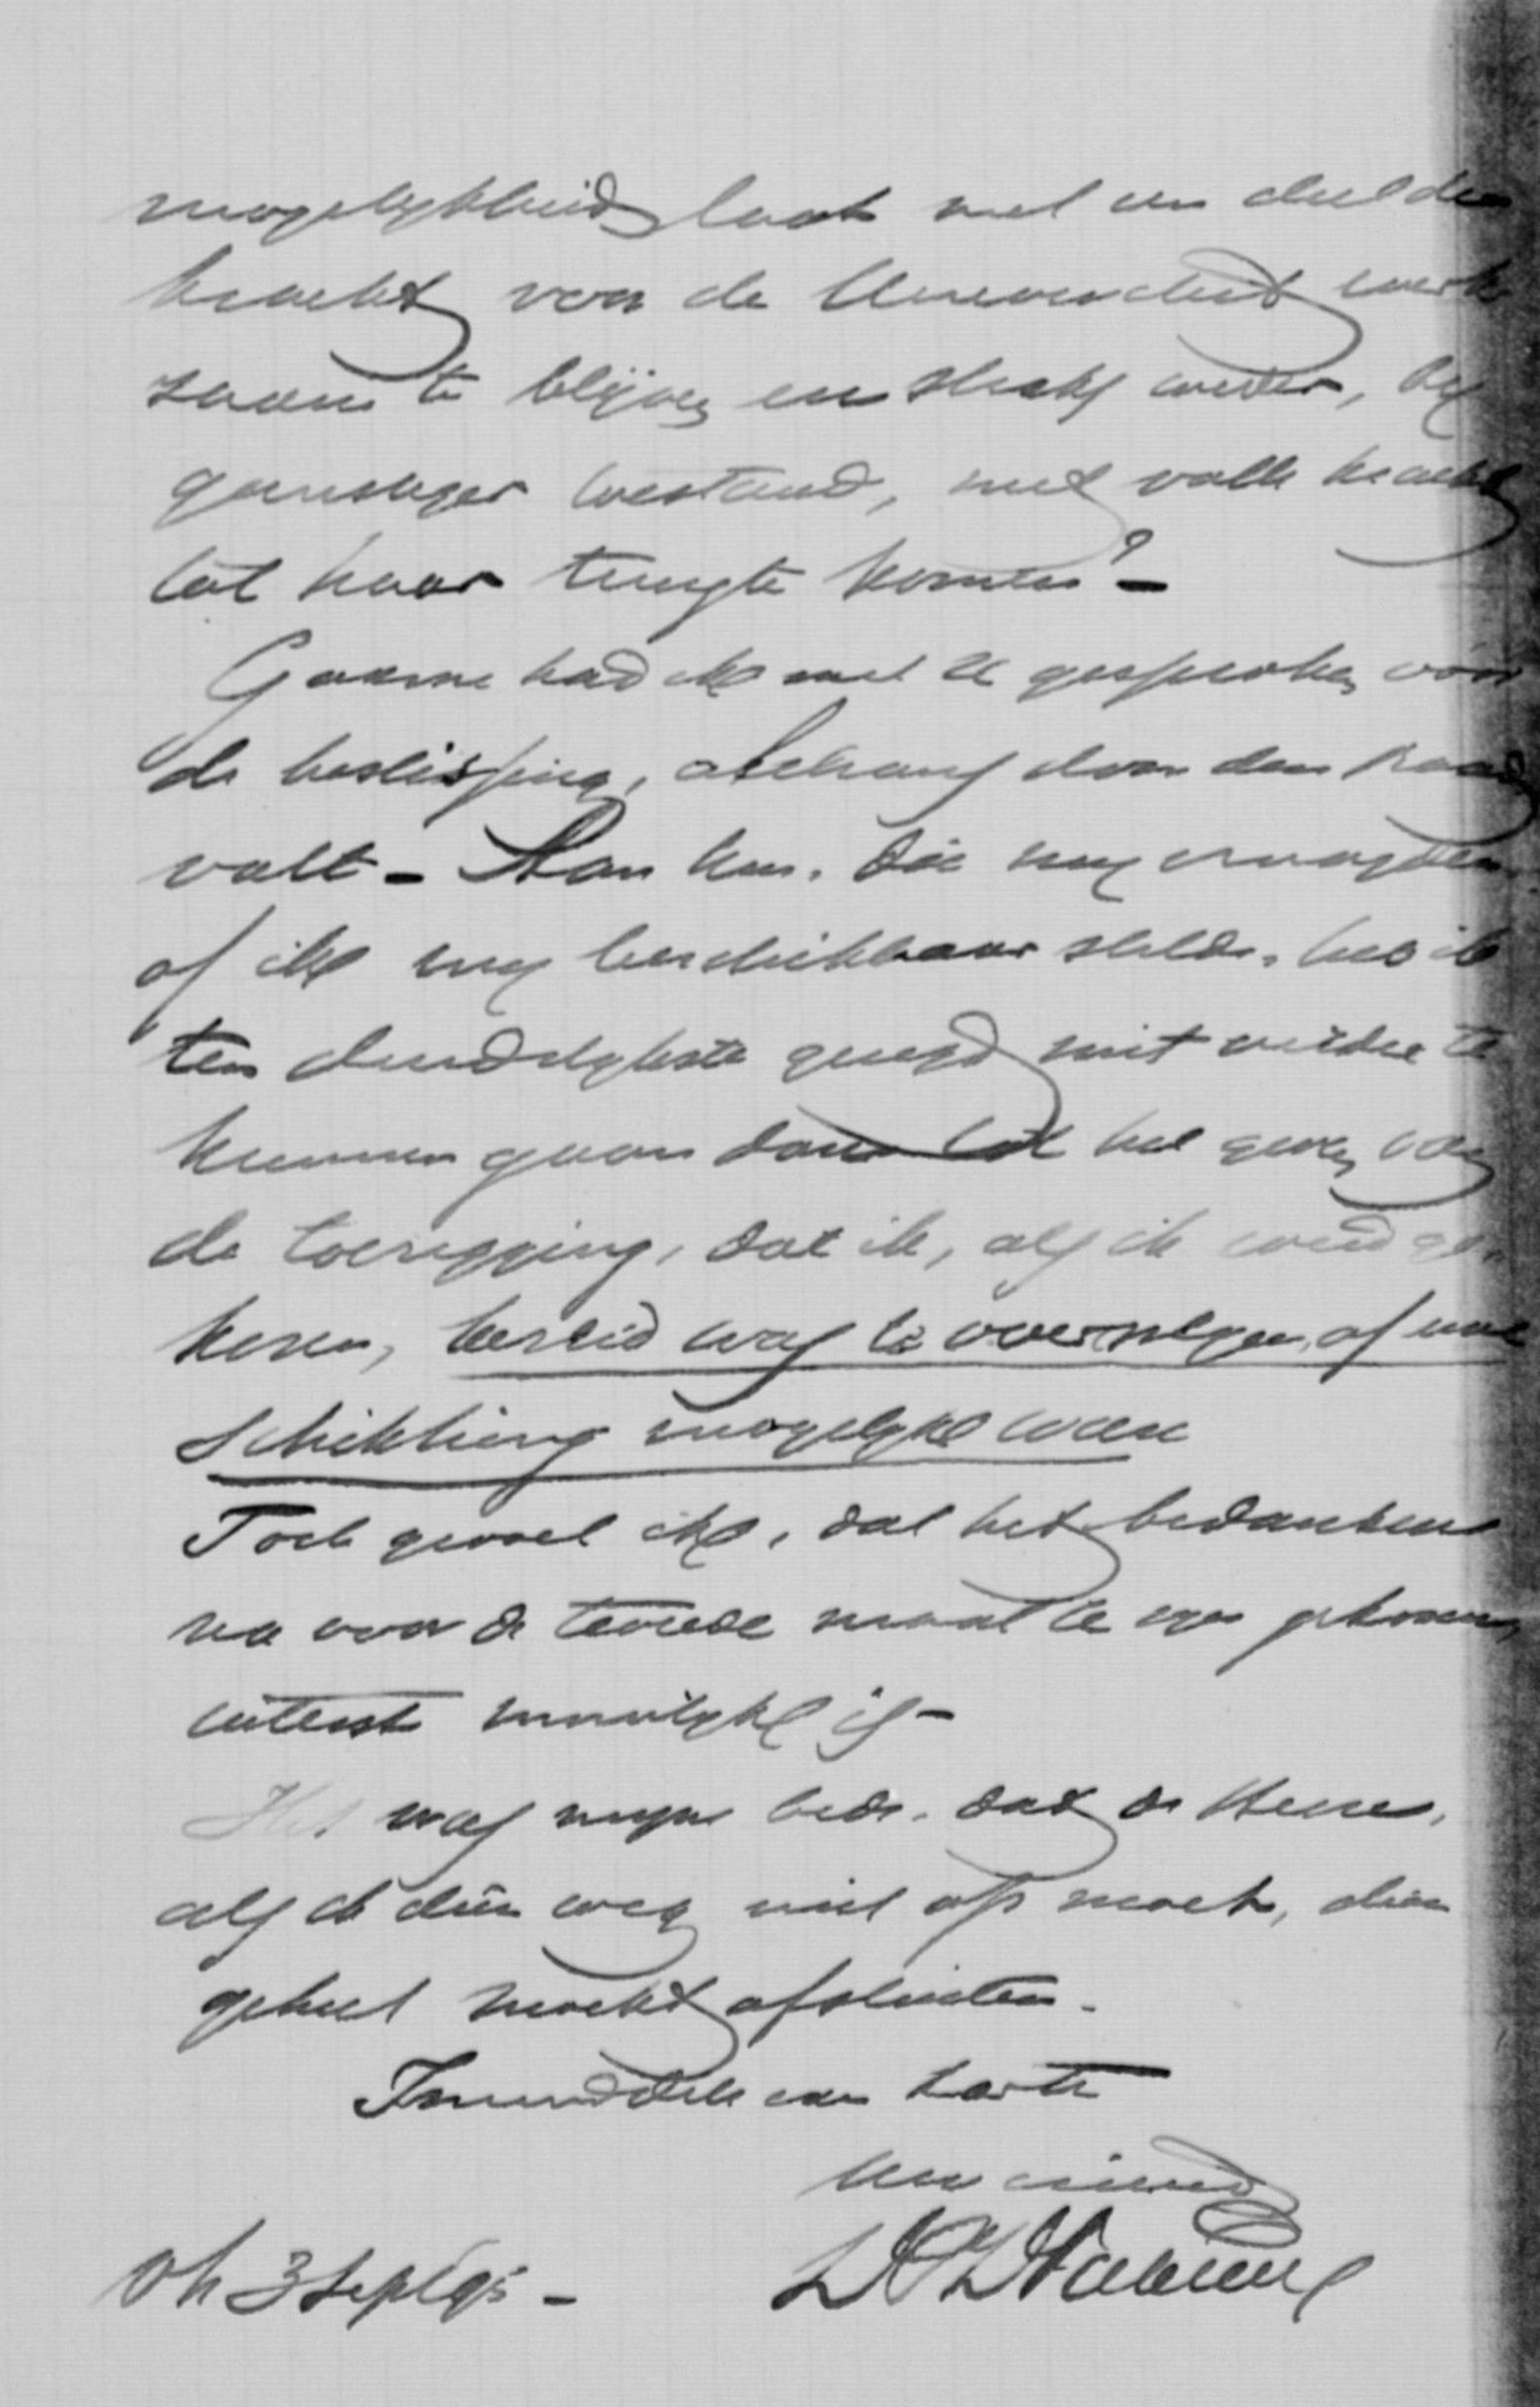 mogelykheid laat met een deel der
kracht voor de Universiteit werk
zaam te blijven en straks weder, by
gunstiger toestand, met volle kracht
tot haar terugte komen? -
Gaarne had ik met U gesproken vóór
de beslissing, althans door den Raad
valt - Aan hen, die my vraagden
of ik my beschikbaar stelde, heb ik
ten duidelykste gezegd niet verder te
kunnen gaan dan tot het geven van
de toezegging, dat ik, als ik werd ge-
kozen, bereid was te overwegen, of eene
schikking mogelyk ware
Toch gevoel ik, dat het bedanken
na voor de tweede maal te zyn gekozen
uiterst moeilyk is -
Het was myne bede, dat de Heere,
als ik dien weg niet op moet, dien
geheel mocht afsluiten.
Inmiddels van harte
Uw vriend
3 Sept 95 -